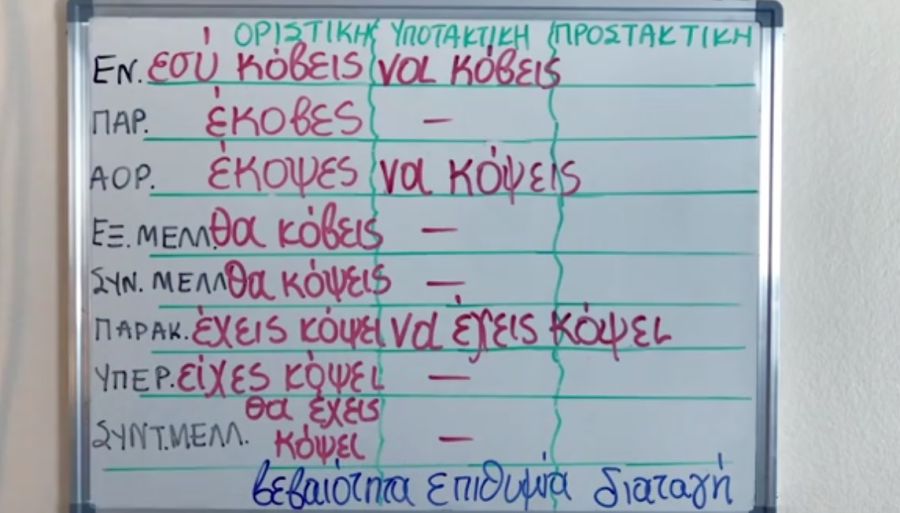 ΟΡΙΣΤΙΚΗ ΥΠΟΤΑΚΤΙΚΗ ΠΡΟΣΤΑΚΤΙΚΗ
ΕΝ. εσύ κόβεις να κόβεις
ΠΑΡ. έκοβες —
ΑΟΡ. έκοψες να κόψεις
ΕΞ. ΜΕΛΛ. θα κόβεις —
ΣΥΝ. ΜΕΛΛ θα κόψεις —
ΠΑΡΑΚ. έχεις κόψει να έχεις κόψει
ΥΠΕΡ. είχες κόψει —
ΣΥΝΤ. ΜΕΛΛ. θα έχεις
κόψει —
βεβαιότητα επιθυμία διαταγή